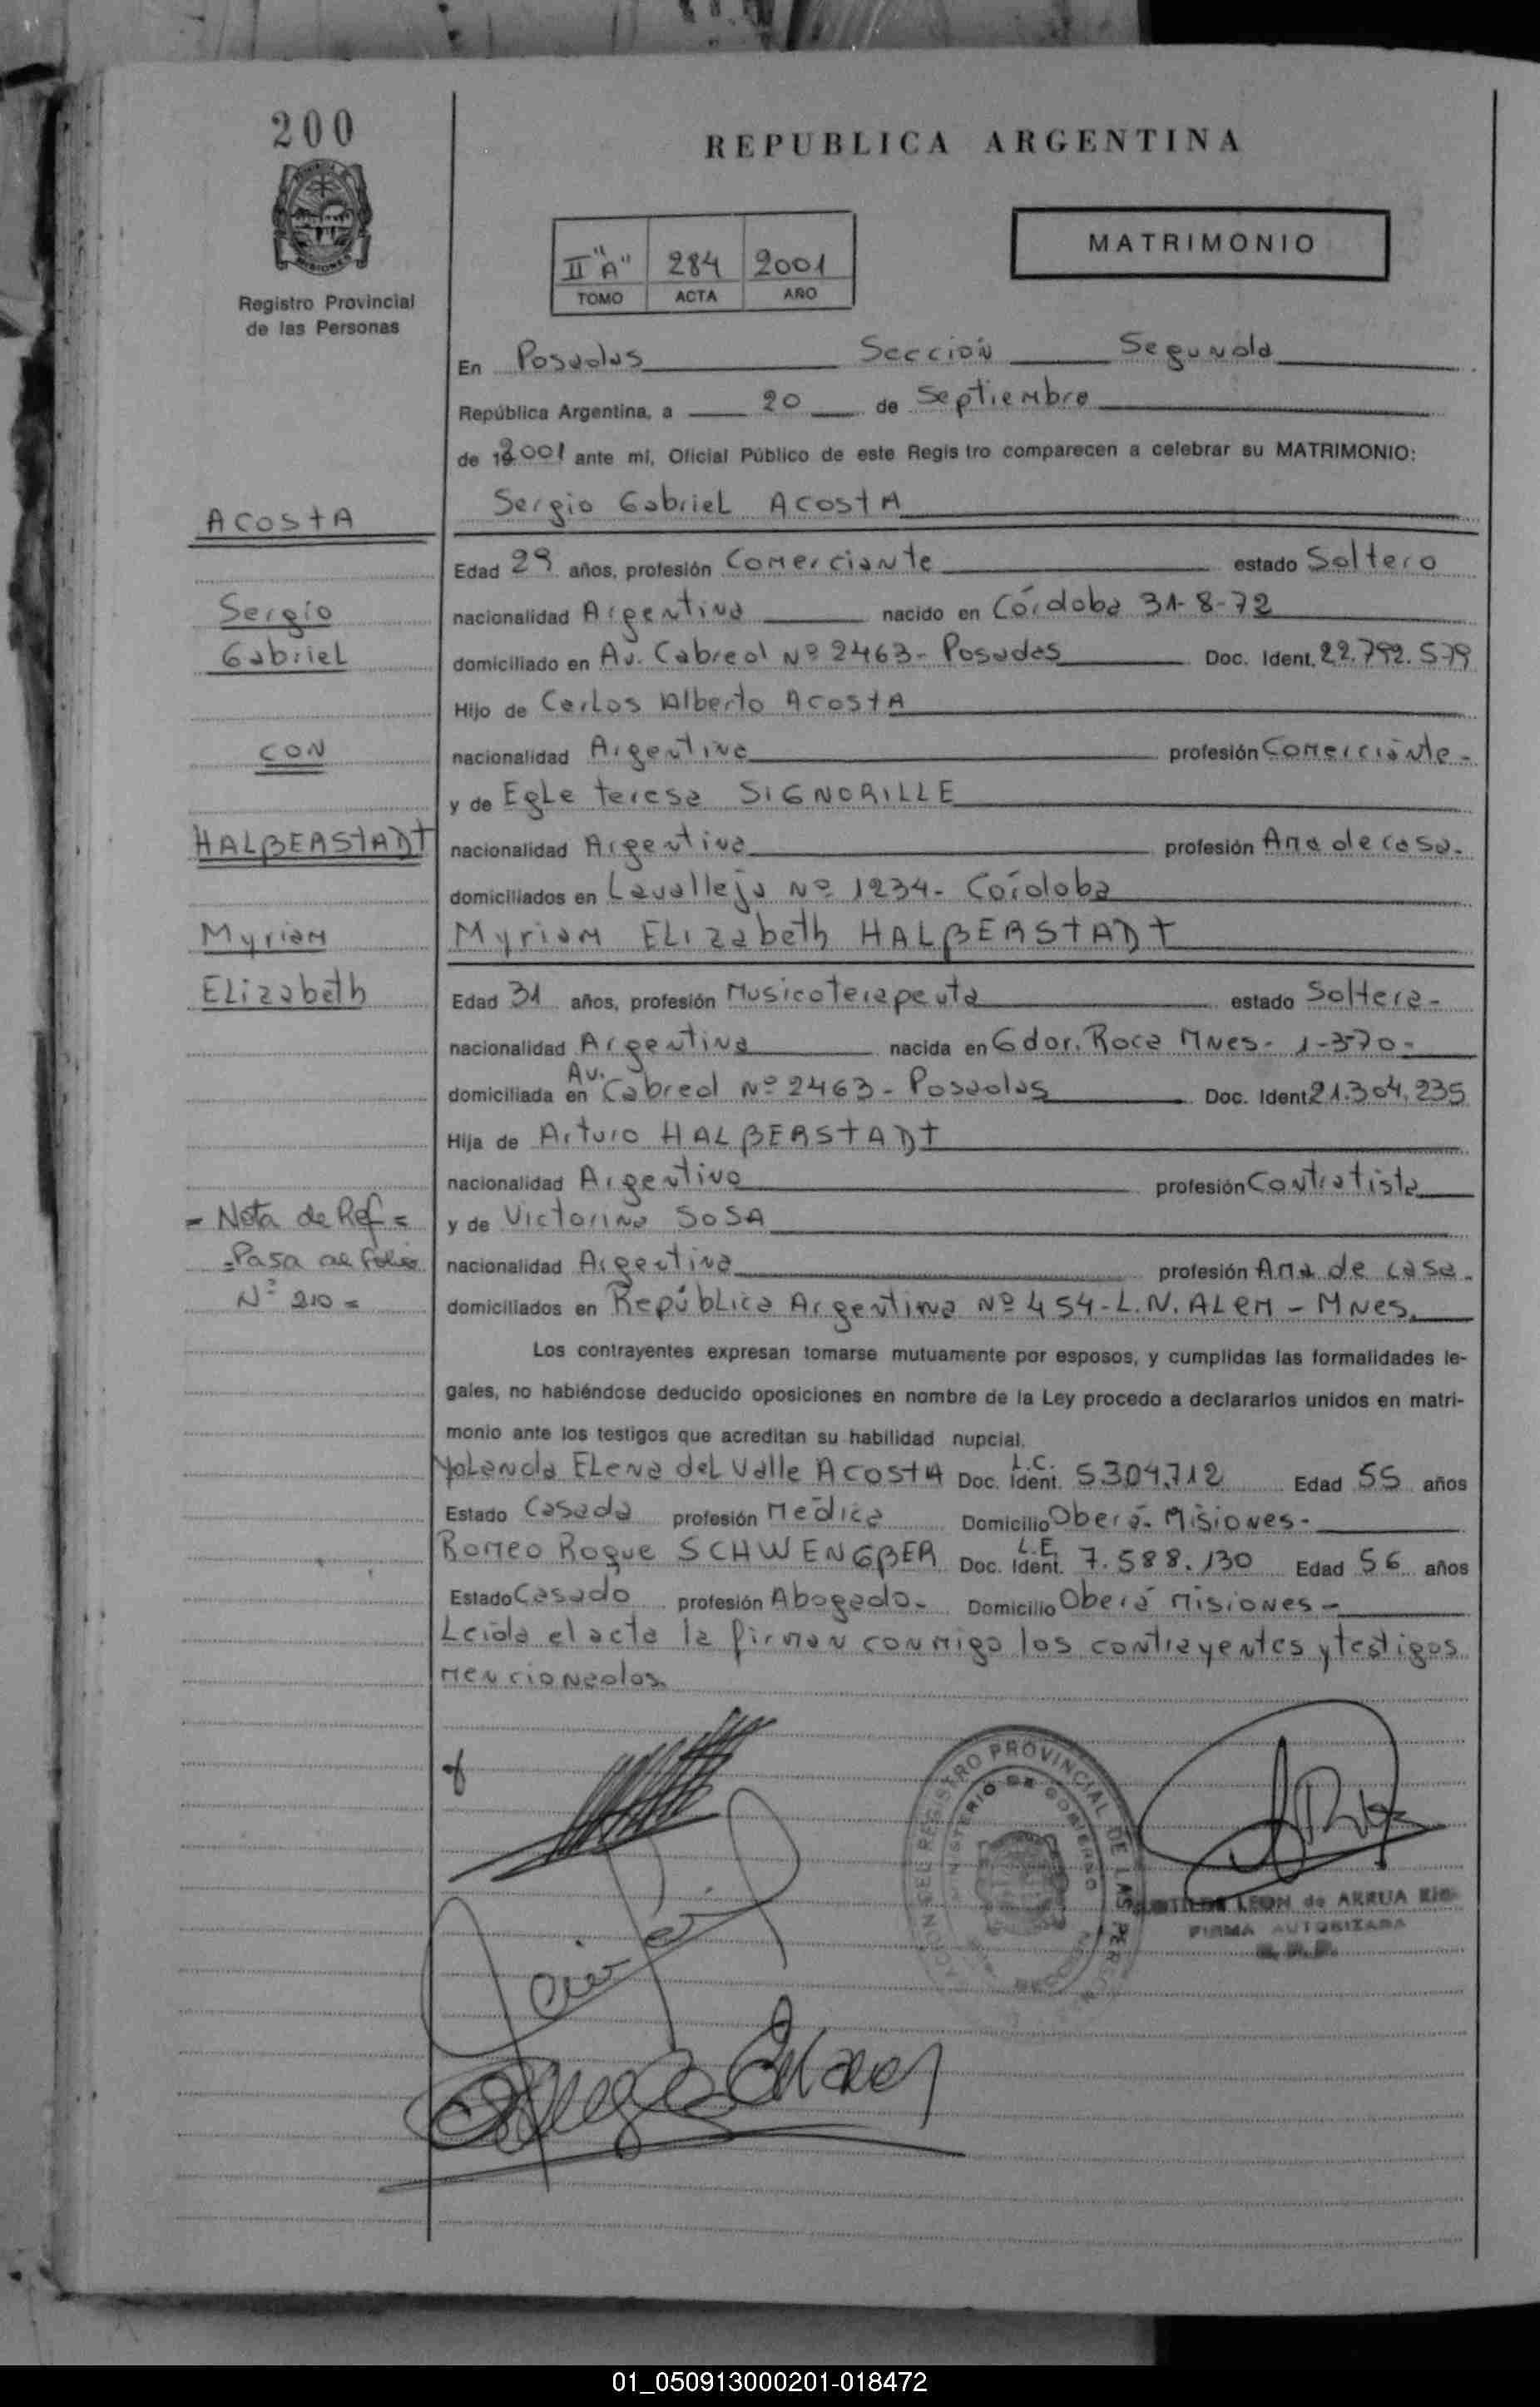 200
REPUBLICA ARGENTINA
MATRIMONIO
II "A" 284 2001
TOMO ACTA AÑO
MISIONES
Registro Provincial
de las Personas
En Posadas Sección Segunda
República Argentina, a 20 de Septiembre
de 2001 ante mí, Oficial Público de este Registro comparecen a celebrar su MATRIMONIO:
Sergio Gabriel ACOSTA
ACOSTA
Edad 29 años, profesión Comerciante estado Soltero
Sergio
nacionalidad Argentina nacido en Córdoba 31-8-72
Gabriel
domiciliado en Av. Cabred Nº 2463- Posadas Doc. Ident. 22.792.579
Hijo de Carlos Alberto ACOSTA
CON
nacionalidad Argentina profesión Comerciante-
y de Egle teresa SIGNORILLE
HALBERSTADT
nacionalidad Argentina profesión Ama de casa.
domiciliados en Lavalleja Nº 1234- Córdoba
Myriam
Myriam Elizabeth HALBERSTADT
Elizabeth
Edad 31 años, profesión Musicoterapeuta estado Soltera-
nacionalidad Argentina nacida en Gdor. Roca Mnes- 1-3-70-
domiciliada en Av. Cabred Nº 2463- Posadas Doc. Ident 21.304.235
Hija de Arturo HALBERSTADT
nacionalidad Argentino profesión Contratista
- Nota de Ref =
y de Victorina SOSA
=Pasa al folio
nacionalidad Argentina profesión Ama de casa.
Nº 210=
domiciliados en República Argentina Nº 454-L.N. ALEM - Mnes.
Los contrayentes expresan tomarse mutuamente por esposos, y cumplidas las formalidades le-
gales, no habiéndose deducido oposiciones en nombre de la Ley procedo a declararlos unidos en matri-
monio ante los testigos que acreditan su habilidad nupcial.
Yolanda Elena del Valle ACOSTA Doc. Ident. L.C. 5.304.712 Edad 55 años
Estado Casada profesión Médica Domicilio Oberá- Misiones-
Romeo Roque SCHWENGBER Doc. Ident. L.E. 7.588.130 Edad 56 años
Estado Casado profesión Abogado- Domicilio Oberá Misiones-
Leída el acta la firman conmigo los contrayentes y testigos
mencionados.
REGISTRO PROVINCIAL DE LAS PERSONAS
MINISTERIO DE GOBIERNO
LEON de ARRUA
FIRMA AUTORIZADA
01_050913000201-018472